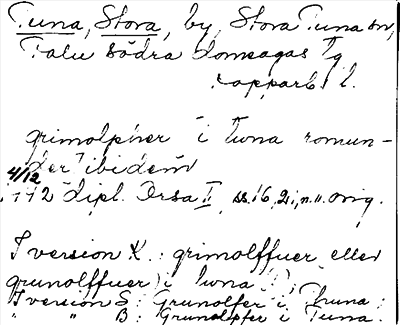 Tuna, Stora, by, Stora Tuna sn,
Falu södra domsagas tg
Kopparb. l.
grimolpher i tuna romun-
der ibidem
4/12
dipl. Orsa II, ss. 16, 21, n. u. orig.
I version K.: grimolffuer eller
grunolffuer i tuna
I version S: Grunolfer i Thuna;
" " B: Grunolpter i Tuna.